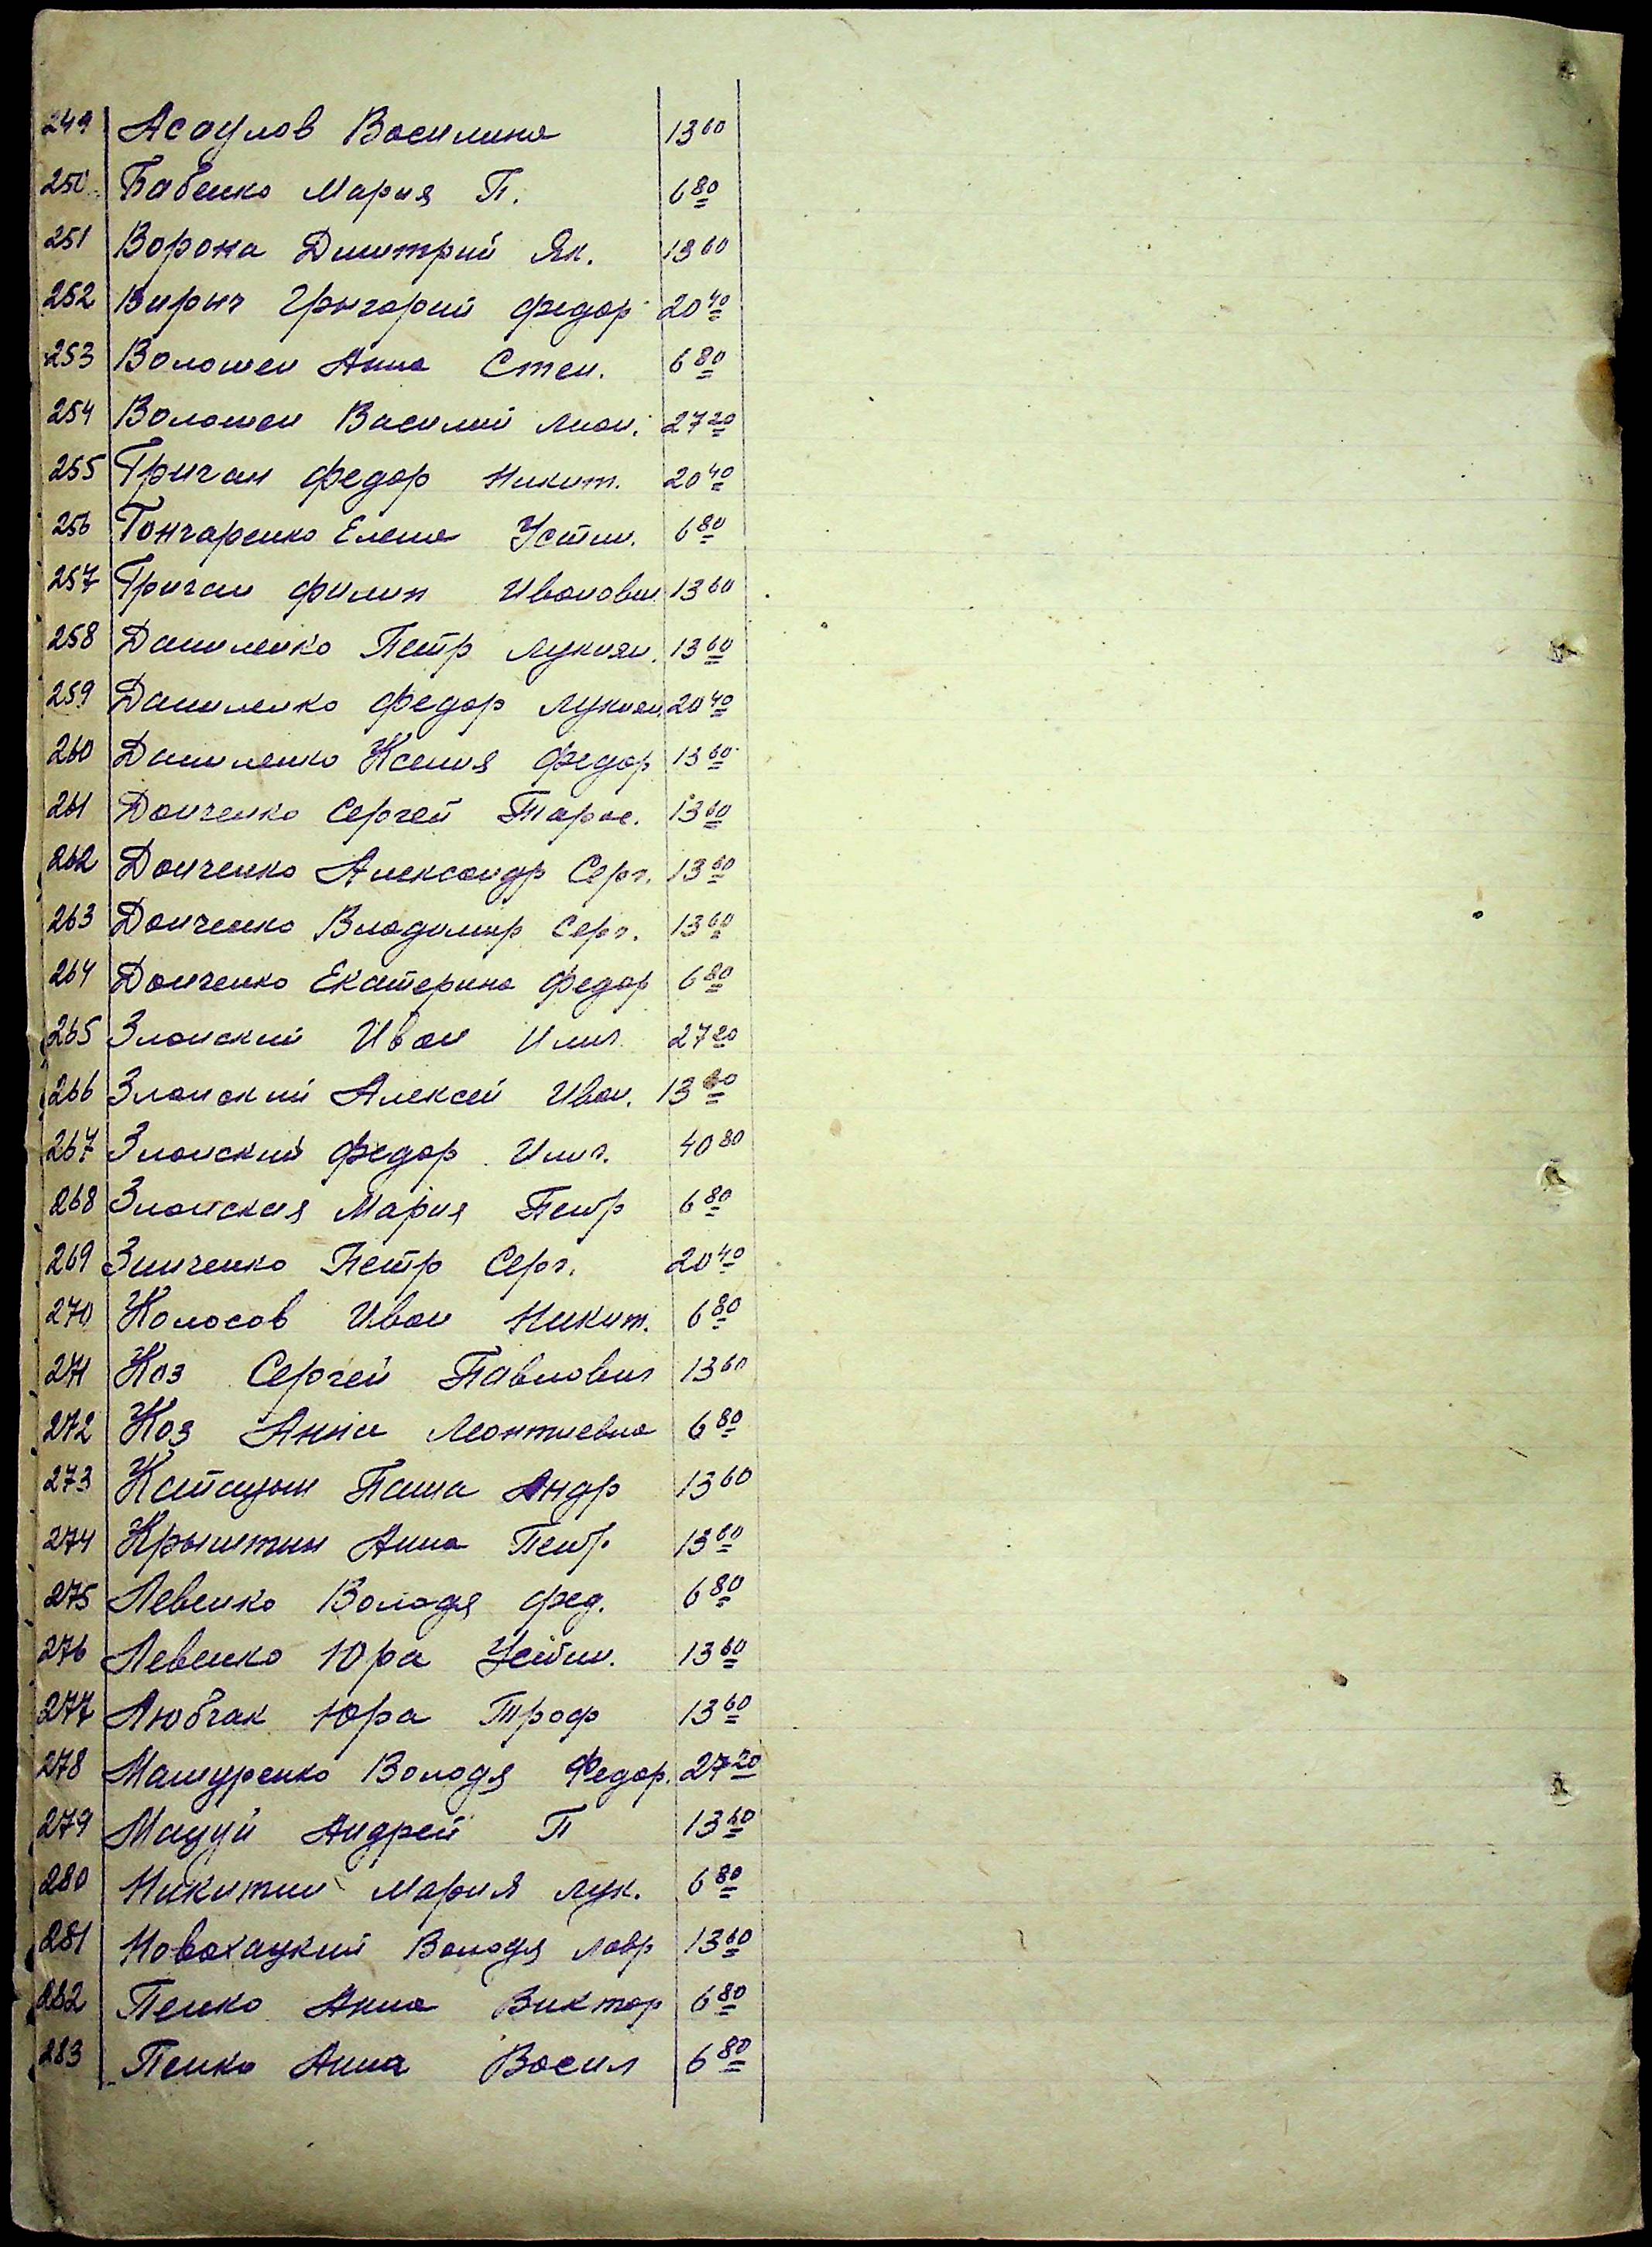 249 Асаулов Василина 13 60
250 Бабенко Мария П. 6 80
251 Ворона Дмитрий Як. 13 60
252 Вирыч Григорий Федор 20 40
253 Волошен Анна Степ. 6 80
254 Волошен Василий Лион. 27 20
255 Гричан Федор Никит. 20 40
256 Гончаренко Елена Устин. 6 80
257 Гричан Филип Иванович 13 60
258 Даниленко Петр Лукиян. 13 60
259 Даниленко Федор Лукиян 20 40
260 Даниленко Ксения Федор 13 60
261 Донченко Сергей Тарас. 13 60
262 Донченко Александр Серг. 13 60
263 Донченко Владимир Серг. 13 60
264 Донченко Екатерина Федор 6 80
265 Злонский Иван Илич. 27 20
266 Злонский Алексей Иван. 13 60
267 Злонский Федор Илич. 40 80
268 Злонская Мария Петр 6 80
269 Зинченко Петр Серг. 20 40
270 Колосов Иван Никит. 6 80
271 Коз Сергей Павлович 13 60
272 Коз Анна Леонтиевна 6 80
273 Паша Андр 13 60
274 Анна Петр. 13 60
275 Левенко Володя Фед. 6 80
276 Левенко Юра Устин. 13 60
277 Любчак Юра Троф 13 60
278 Машуренко Володя Федор. 27 20
279 Мацуй Андрей П 13 60
280 Никитин Мария Лук. 6 80
281 Новохацкий Володя Лавр 13 60
282 Пенко Анна Виктор 6 80
283 Пенко Анна Васил 6 80